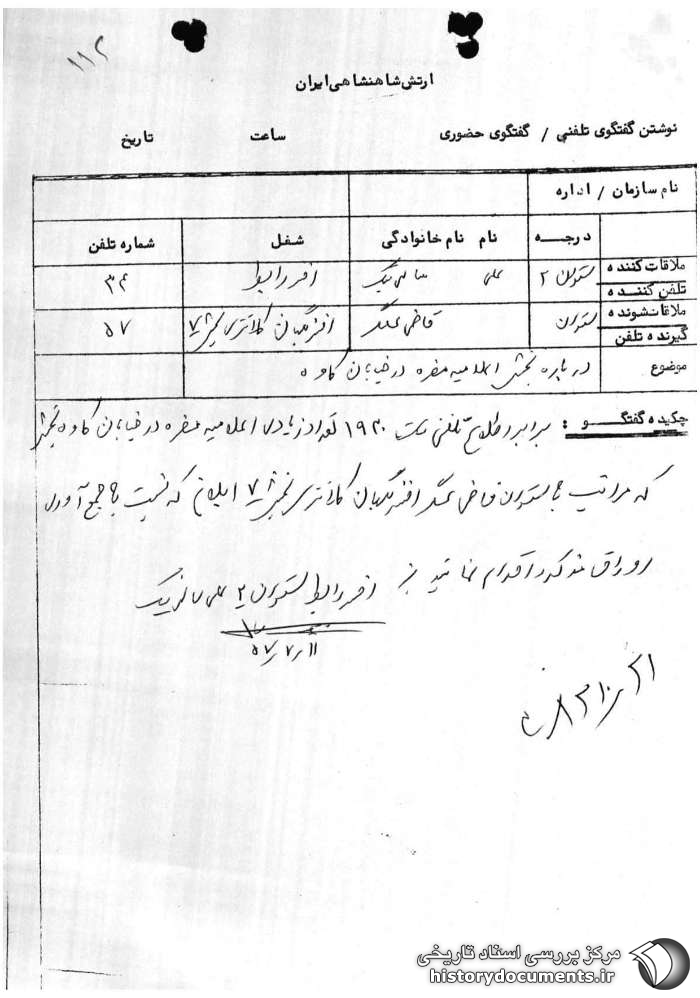 ۱۱۲
ارتش شاهنشاهی ایران
نوشتن گفتگوی تلفنی / گفتگوی حضوری ساعت تاریخ
نام سازمان / اداره
درجه نام نام خانوادگی شغل شماره تلفن
ملاقات کننده ستوان ۲ علی افسر رابط ۳۴
تلفن کننده
ملاقات شونده ستوان قاضی عسگر افسر نگهبان کلانتری ۵۷
گیرنده تلفن
موضوع درباره پخش اعلامیه مضره در خیابان کاوه
چکیده گفتگو : برابر اطلاع تلفنی ساعت ۱۹۲۰ تعداد زیادی اعلامیه مضره در خیابان کاوه پخش
که مراتب به ستوان قاضی عسگر افسر نگهبان کلانتری ابلاغ که نسبت به جمع آوری
اوراق مذکور اقدام نمایند
افسر رابط ستوان ۲ علی
۵۷/۷/۱۱
مرکز بررسی اسناد تاریخی
historydocuments.ir